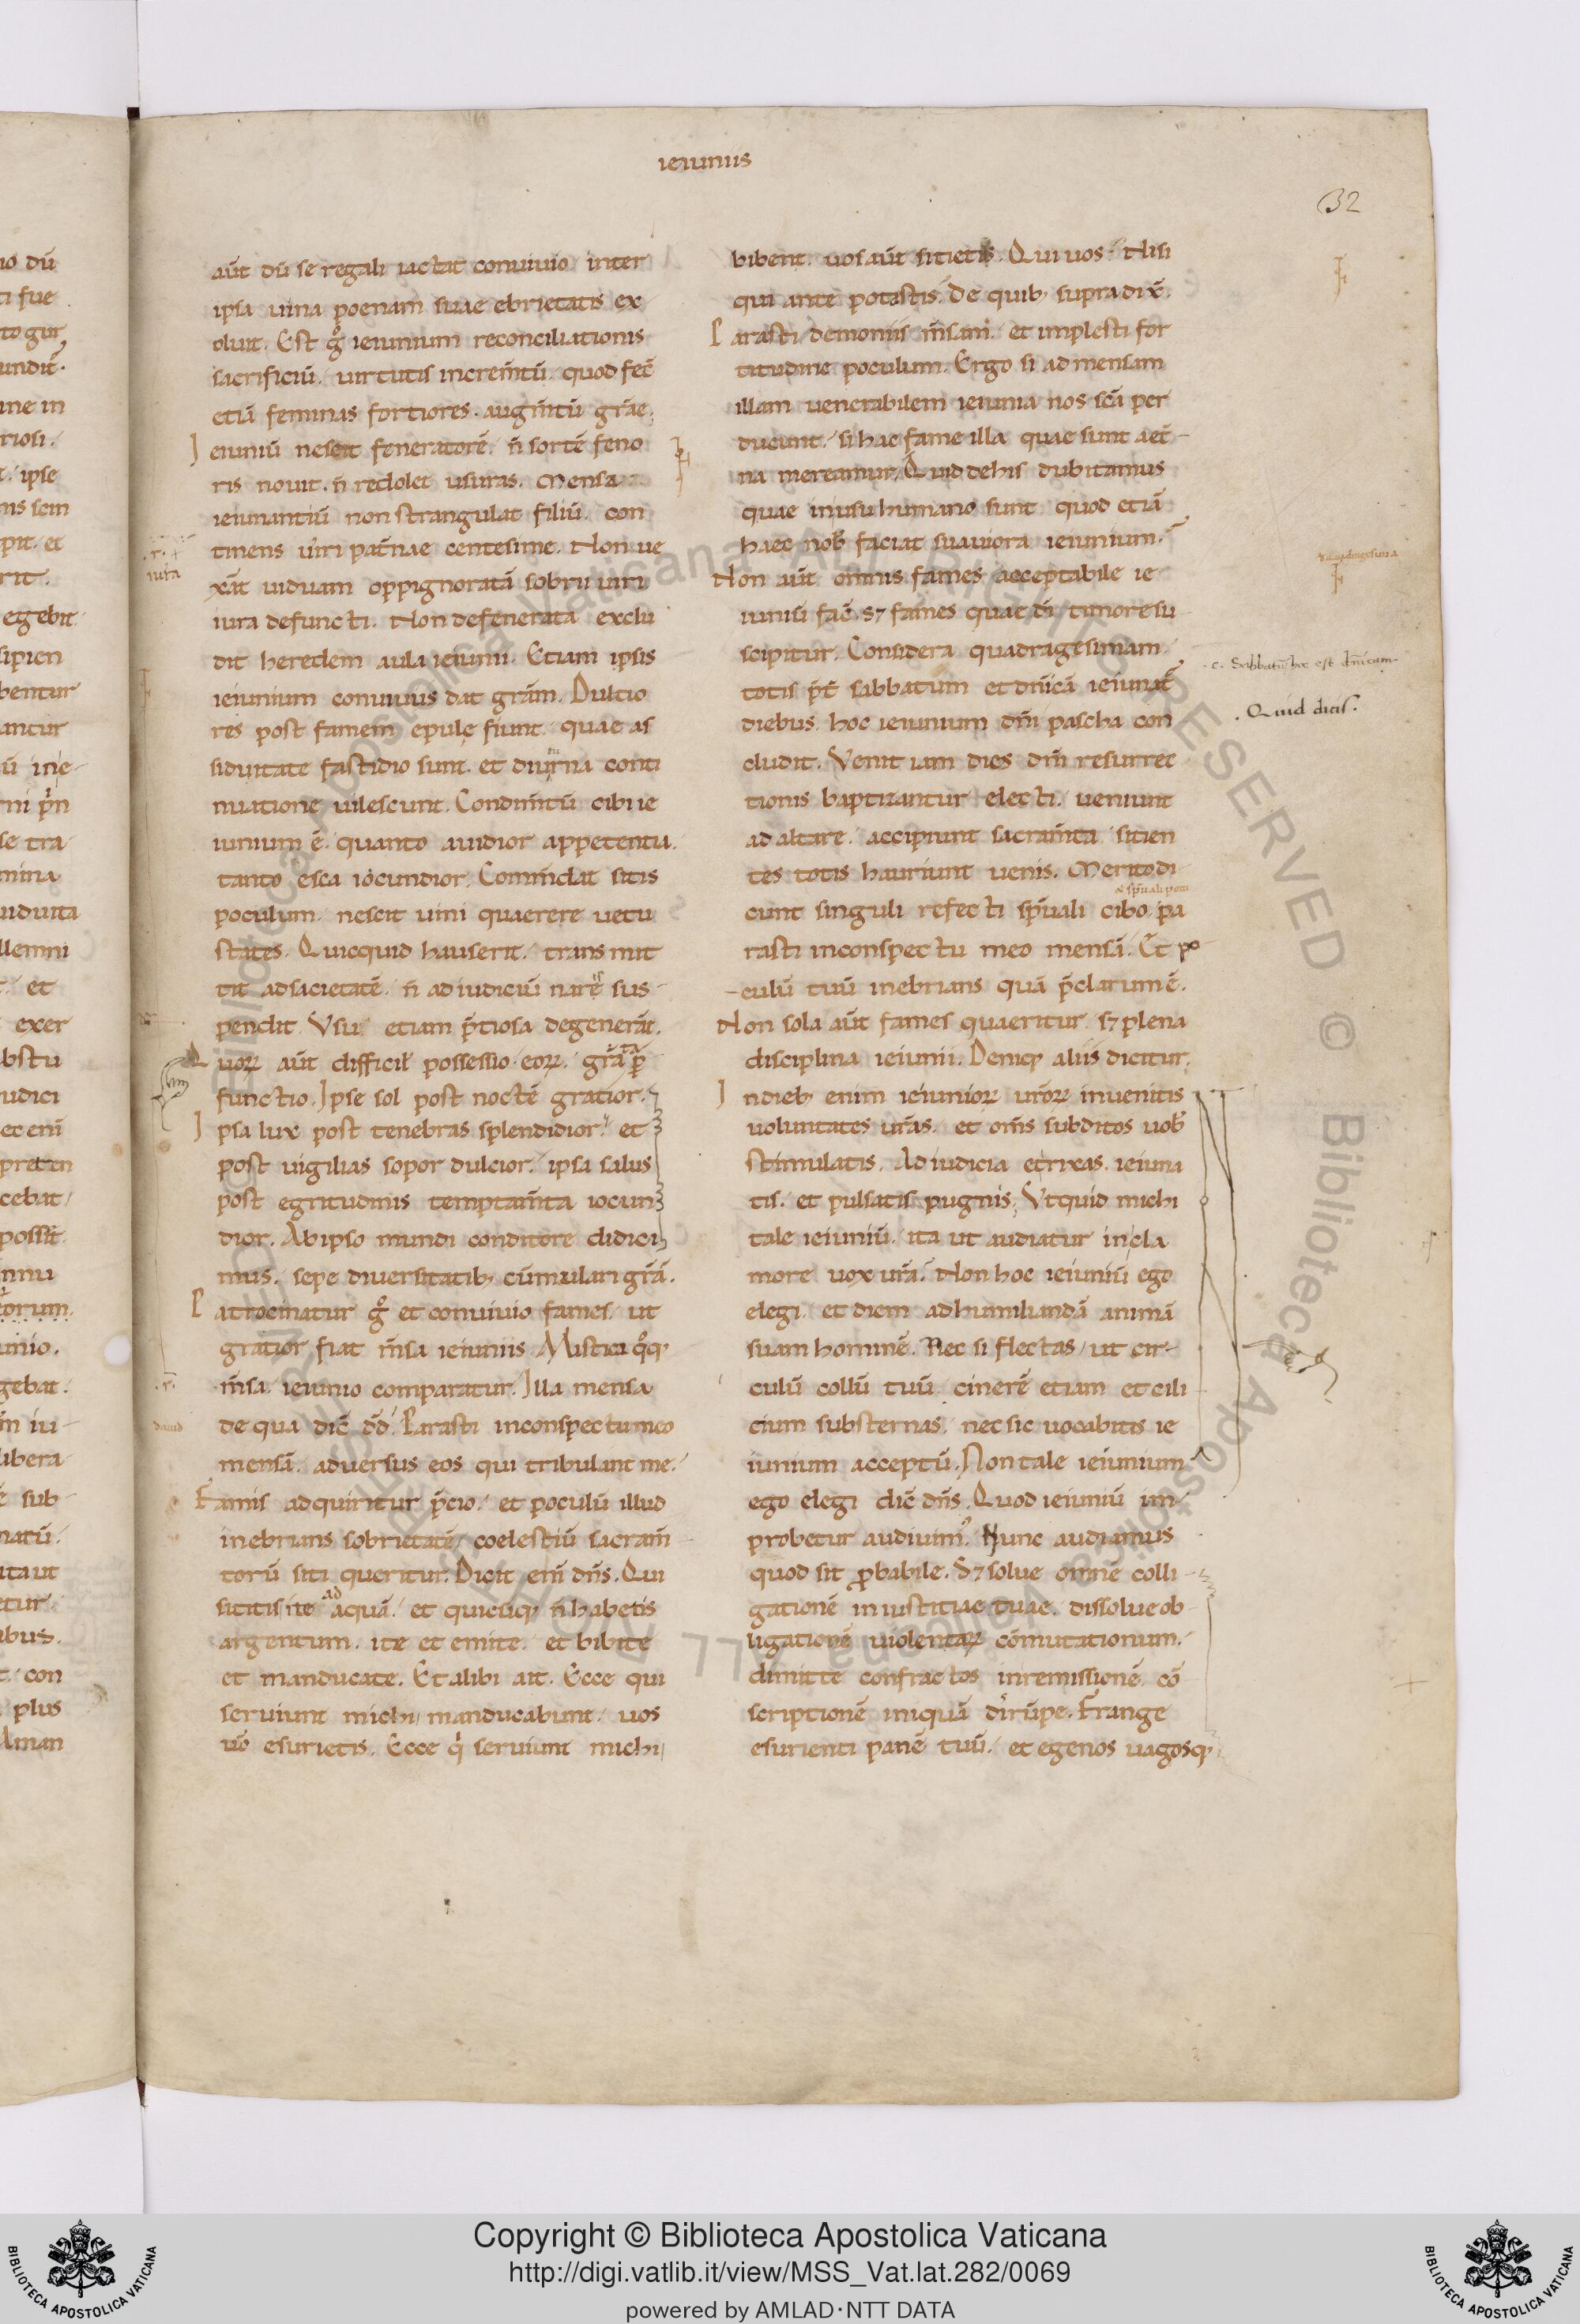 ieiuniis
32
aūt dū se regali iactat conuiuio inter
ipsa uina poenam suae ebrietatis ex
oluit. Est g° ieiunium reconciliationis
sacrificiū. uirtutis increm̄tū. quod fec̄
etiā feminas fortiores. augm̄tū gr̄ae.
Ieiuniū nescit feneratorē. n̄ sortē feno
ris nouit. n̄ redolet usuras. Mensa
ieiunantiū non strangulat filiū. con
tinens pat̄nae centesime. Non ue
xāt uiduam oppignoratā sobrii uiri
iura defuncti. Non defenerata exclu
dit heredem aula ieiunii. Etiam ipsis
ieiunium conuiuiis dat gr̄am. Dulcio
res post famem epulę fiunt. quae as
siduitate fastidio sunt. et diurna conti
nuatione uilescunt. Condim̄tū cibi ie
iunium ē. quanto auidior appetentia.
tanto esca iocundior. Comm̄dat sitis
poculum. nescit uini quaerere uetu
states. Quicquid hauserit. transmit
tit ad sacietatē. n̄ ad iudiciū narē sus
pendit. Vsu etiam p̄tiosa degenerāt.
Quoꝝ aūt difficil̄ possessio eoꝝ. gr̄a ꝑ
functio. Ipse sol post noctē gratior.
Ipsa lux post tenebras splendidior. et
post uigilias sopor dulcior. ipsa salus
post egritudinis temptam̄ta iocun
dior. Ab ipso mundi conditore didici
mus. sepe diuersitatib; cūmulari gr̄ā.
Patrocinatur g° et conuiuio fames. ut
gratior fiat m̄sa ieiuniis. Mistica q°q;
m̄sa ieiunio comparatur. Illa mensa
de qua dic̄ dd̄. Parasti in conspectu meo
mensā. aduersus eos qui tribulant me.
Famis adquiritur p̄cio. et poculū illud
inebrians sobrietatē. coelestiū sacram̄
torū siti queritur. Dicit eni᷑ dn̄s. Qui
sititis ite ad aquā. et quicūq; n̄ habetis
argentum. ite et emite. et bibite
et manducate. Et alibi ait. Ecce qui
seruiunt michi manducabunt. uos
uō esurietis. Ecce qⁱ seruiunt michi
bibent. uos aūt sitietis. Qui uos. Nisi
qui ante potastis. De quib; supra dix̄.
Parasti demoniis m̄sam. et implesti for
titudine poculum. Ergo si ad mensam
illam uenerabilem ieiunia nos sc̄a per
ducunt. si hac fame illa quae sunt aet̄
na mereamur. Quid de his dubitamus
quae in usu humano sunt quod etiā
haec nob̄ faciat suauiora ieiunium.
Non aūt omnis fames acceptabile ie
iuniū fac̄. sꝫ fames quae dī timore su
scipitur. Considera quadragesimam.
totis p̄t̄ sabbatum et dn̄icā ieiunat᷑
diebus. hoc ieiunium dn̄i pascha con
cludit. Venit iam dies dn̄i resurrec
tionis. baptizantur electi. ueniunt
ad altare. accipiunt sacram̄ta. sitien
tes totis hauriunt uenis. Merito di
cunt singuli refecti sp̄uali cibo. pa
rasti in conspectu meo mensā. Et po
culū tuū inebrians quā p̄clarum ē.
Non sola aūt fames quaeritur. sꝫ plena
disciplina ieiunii. Deniq; aliis dicitur.
In dieb; enim ieiunioꝝ ur̄oꝝ inuenitis
uoluntates ur̄as. et om̄s subditos uob̄
stimulatis. Ad iudicia et rixas ieiuna
tis. et pulsatis pugnis. Vt quid michi
tale ieiuniū. ita ut audiatur in cla
more uox ur̄a. Non hoc ieiuniū ego
elegi. et diem ad humiliandā animā
suam hominē. Nec si flectas ut cir
culū collū tuū. cinerē etiam et cili
cium substernas. nec sic uocabitis ie
iunium acceptū. Non tale ieiunium
ego elegi dic̄ dn̄s. Quod ieiuniū im
probetur audiuim᷒. Nunc audiamus
quod sit ꝓbabile. Sꝫ solue omnē colli
gationē iniustitiae tuae. dissolue ob
ligationē uiolentaꝝ cōmutationum.
dimitte confractos in remissionē. cō
scriptionē iniquā dirūpe. Frange
esurienti panē tuū. et egenos uagosq;
iura
dauid
quadragesima
.c. Sabbatū hoc est dn̄icam.
. Quid dicis.
Copyright © Biblioteca Apostolica Vaticana
http://digi.vatlib.it/view/MSS_Vat.lat.282/0069
powered by AMLAD·NTT DATA
BIBLIOTECA APOSTOLICA VATICANA
BIBLIOTECA APOSTOLICA VATICANA